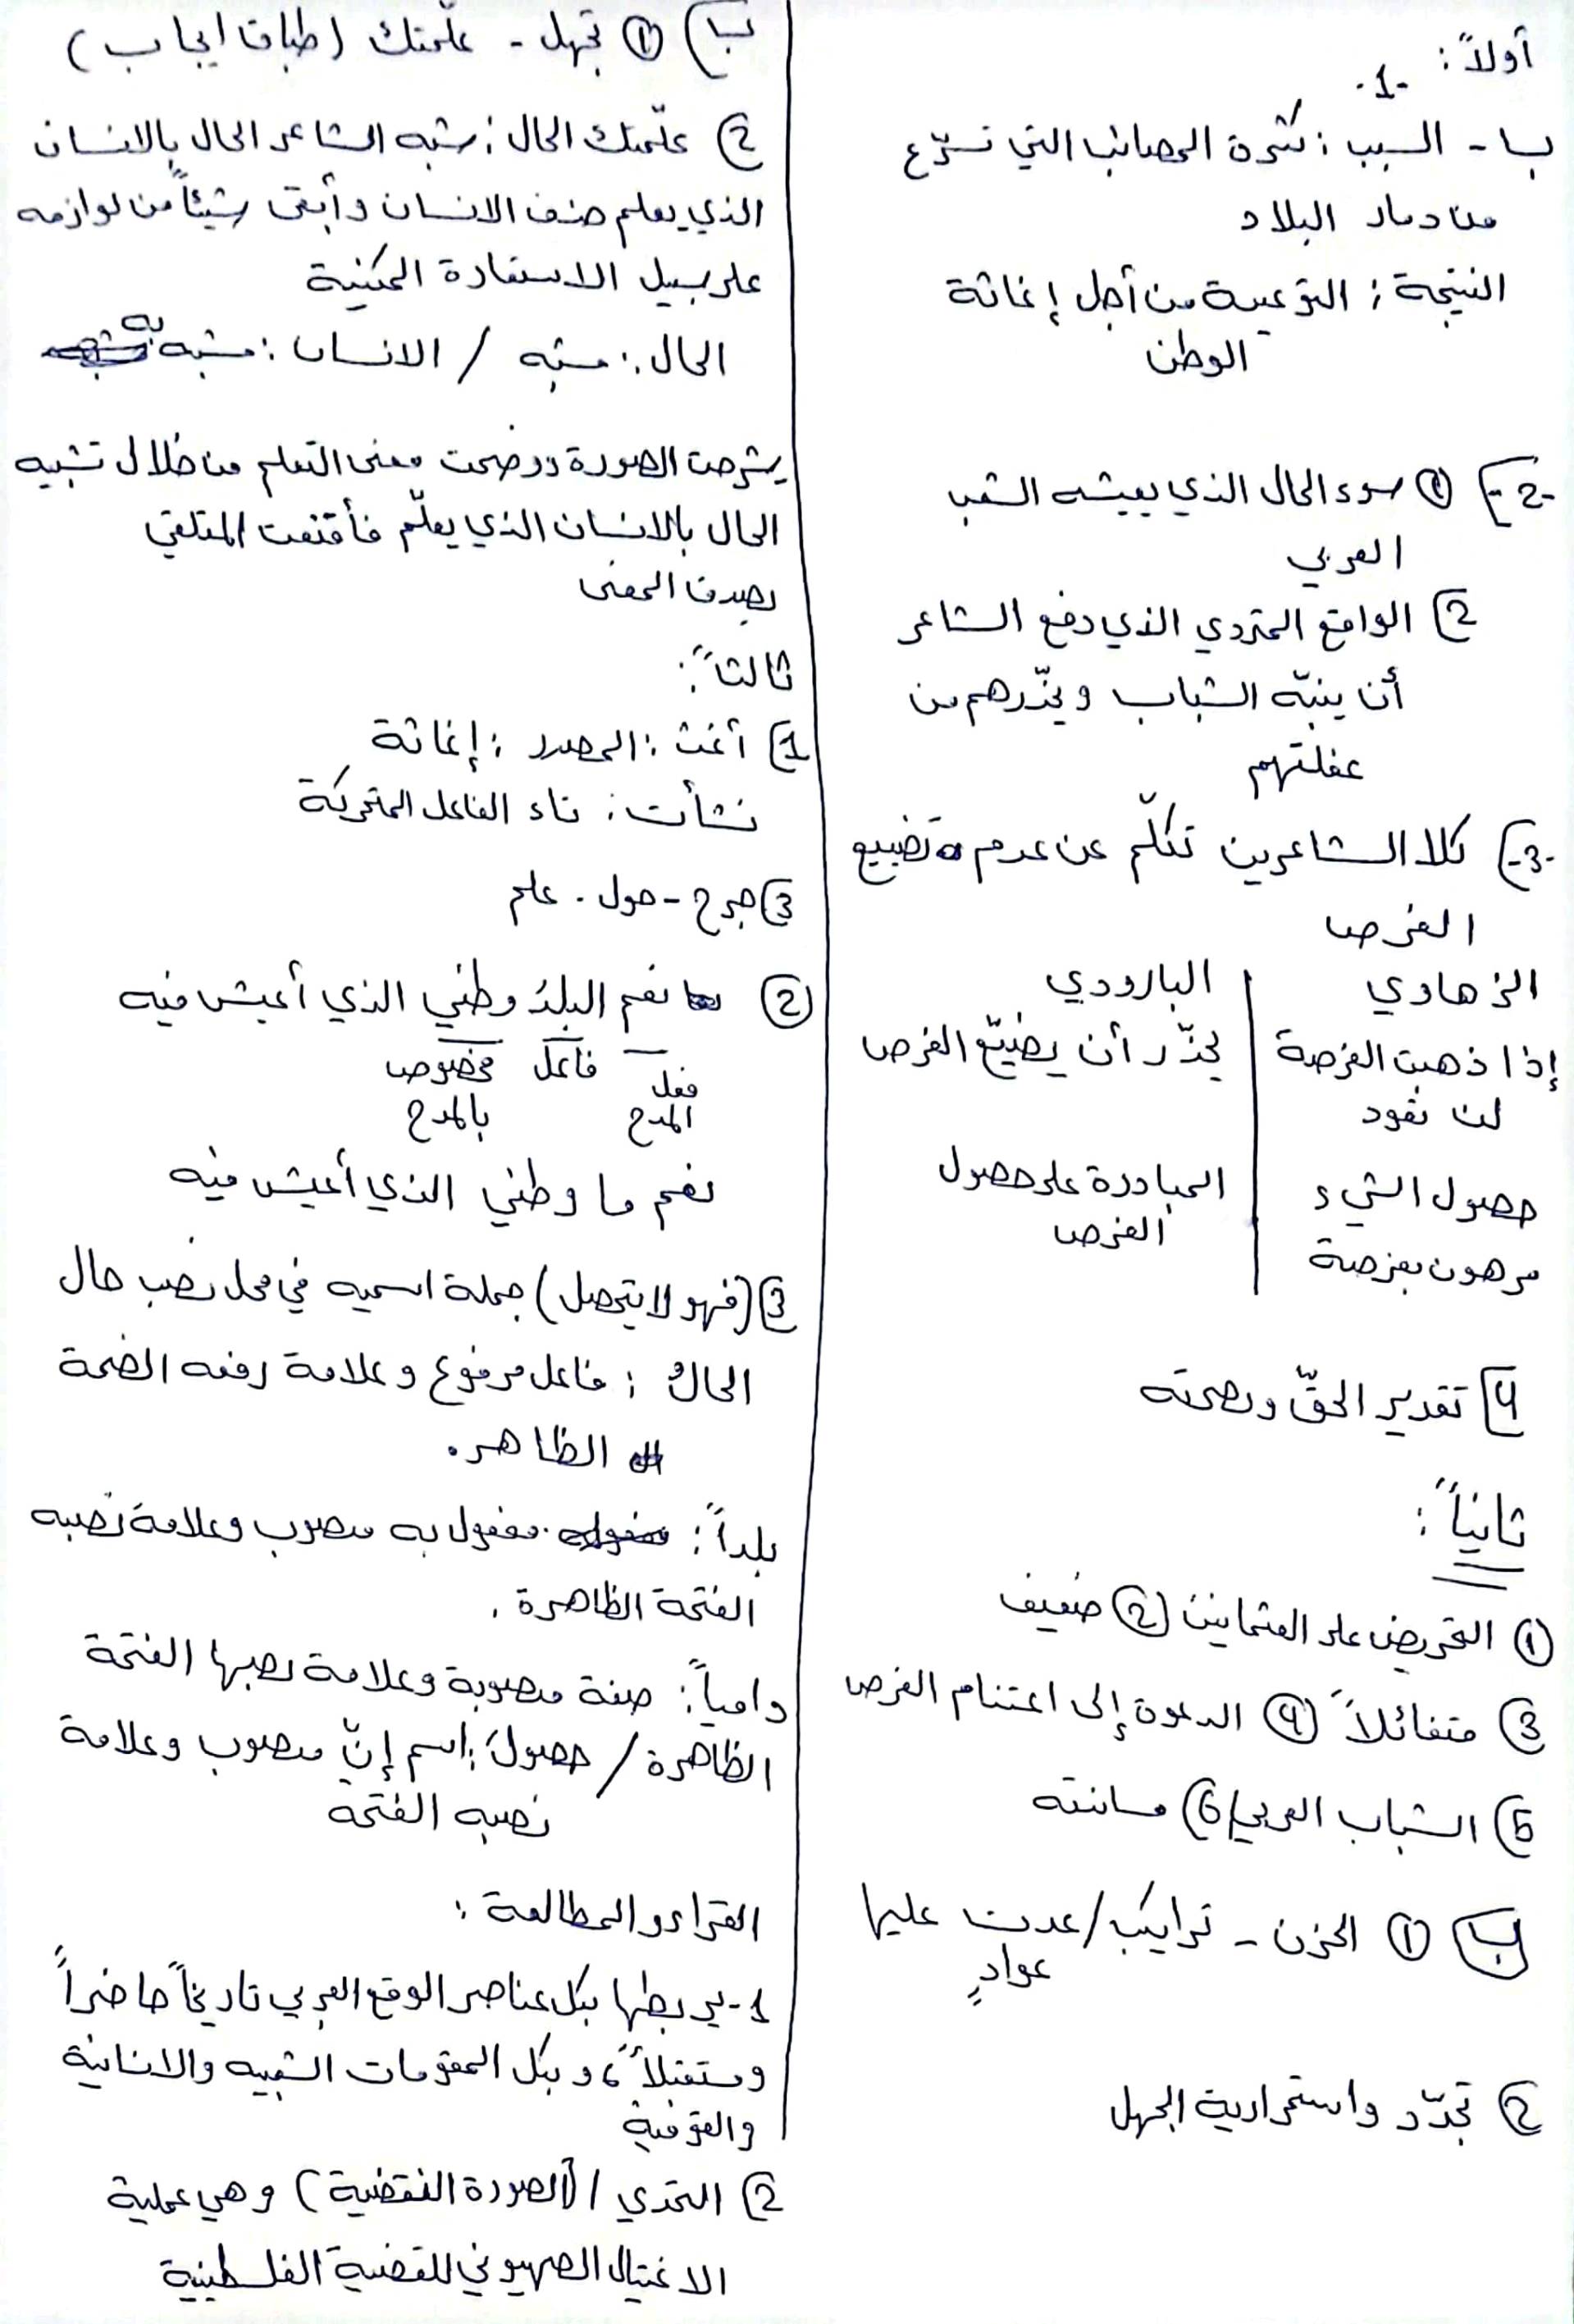 أولاً:
-1-
ب- السبب: كثرة المصائب التي تسرّع
من دمار البلاد
النتيجة: التوعية من أجل إغاثة
الوطن
-2- ① سوء الحال الذي يعيشه الشعب
العربي
② الواقع المتردي الذي دفع الشاعر
أن ينبّه الشباب ويحذّرهم من
غفلتهم
-3- كلا الشاعرين تكلّم عن عدم تضييع
الفرص
الزهاوي | البارودي
إذا ذهبت الفرصة | يحذّر أن يضيّع الفرص
لن تعود
حصول الشيء | المبادرة على حصول
مرهون بفرصة | الفرص
4] تقدير الحقّ ونصرته
ثانياً:
① التحريض على العثمانين ② ضعيف
③ متفائلاً ④ الدعوة إلى اغتنام الفرص
5) الشباب العربي/ 6) مساندته
ب) ① الحزن - تراكيب/عدت عليها
عوادٍ
② تجدّد واستمرارية الجهل
ب) ① تجهل - علّمتك (طباق ايجاب)
② علّمتك الحال: شبه الشاعر الحال بالانسان
الذي يعلم حذف الانسان وأبقى شيئاً من لوازمه
على سبيل الاستعارة المكنية
الحال: مشبه / الانسان: مشبه به
شرحت الصورة ووضحت معنى التعلم من خلال تشبيه
الحال بالانسان الذي يعلّم فأقنعت المتلقي
بصدق المعنى
ثالثاً:
1] أغث: المصدر: إغاثة
نشأت: تاء الفاعل المتحركة
3) جرح - حول - علم
② نعم البلدُ وطني الذي أعيش فيه
فعل فاعل مخصوص
المدح بالمدح
نعم ما وطني الذي أعيش فيه
3] (فهو لا يتحصل) جملة اسميه في محل نصب حال
الحالُ: فاعل مرفوع وعلامة رفعه الضمة
الظاهر.
بلداً: مفعول به منصوب وعلامة نصبه
الفتحة الظاهرة.
دامياً: صفة منصوبة وعلامة نصبها الفتحة
الظاهرة / حصولَ: اسم إنّ منصوب وعلامة
نصبه الفتحة
القراءو المطالعة:
1- يربطها بكل عناصر الوقع العربي تاريخاً حاضراً
ومستقبلاً، وبكل المقومات الشعبيه والانسانية
والقومية
② التحدي / (الصورة النقضية) وهي عملية
الاغتيال الصهيوني للقضية الفلسطينية